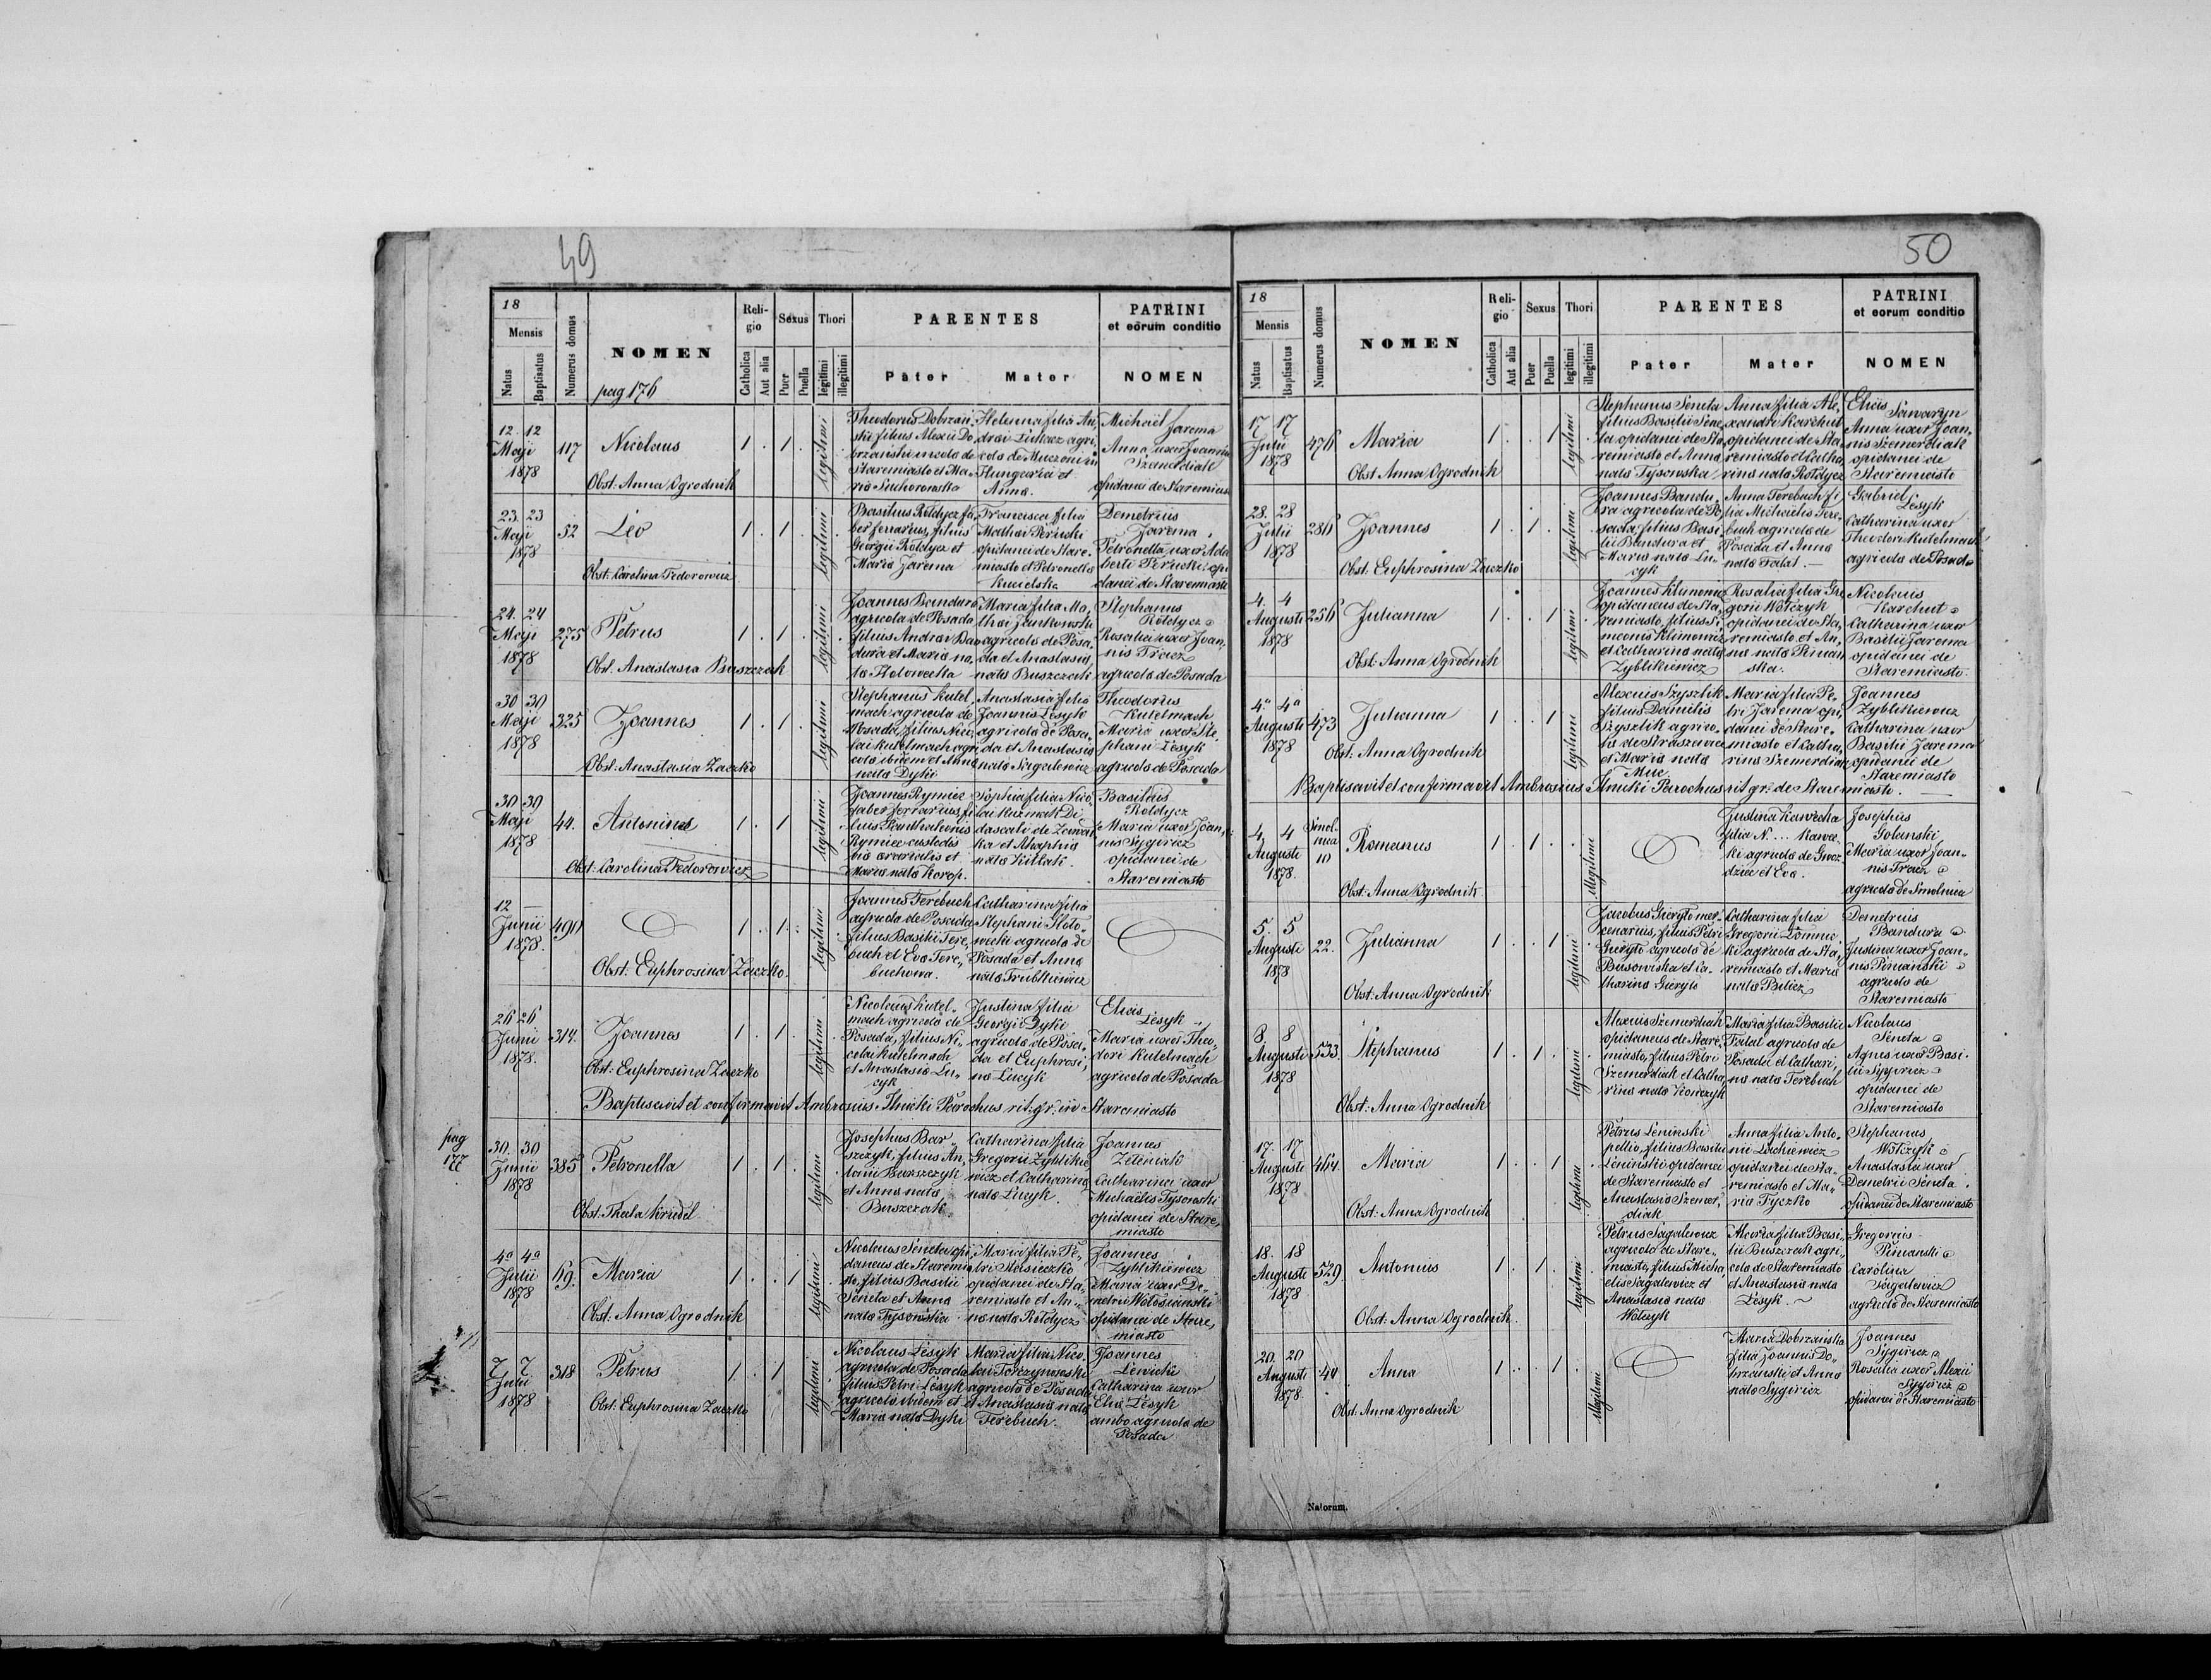 49
18
Mensis
Natus
Baptisatus
Numerus domus
NOMEN
pag 176
Religio
Catholica
Aut alia
Sexus
Puer
Puella
Thori
legitimi
illegitimi
PARENTES
Pater
Mater
PATRINI
et eorum conditio
NOMEN
12. 12
Maji
1878
117
Nicolaus
Obst. Anna Ogrodnik
1 . 1 .
legitimi
Theodorus Dobrzań
ski filius Alexii Do
brzański incola de
Staremiasto et Ma
ria Suchorowska
Helenna filia An,
drei Lukacz agri,
cola de Muczoni in
Hungaria et
Anna.
Michael Jarema
Anna uxor Joannis
Szmerdiak
opidanei de Staremiasto
23. 23
Maji
1878
52
Leo
Obst. Carolina Fedorowicz
1 . 1 .
legitimi
Basilius Kołdycz fa
ber ferrarius, filius
Georgii Kołdycz et
Maria Jarema
Francisca filia
Mathei Pirucki
opidanei de Stare-
miasto et Petronella
Kucielska
Demetrius
Jarema
Petronella uxor Adal
berti Pirucki opi
danei de Staremiasto
24. 24
Maji
1878
275
Petrus
Obst. Anastasia Buszczak
1 . 1 .
legitimi
Joannes Bandura
agricola de Posada
filius Andrei Ban
dura et Maria na,
ta Hołowecka
Maria filia Ma,
thei Jankowski
agricola de Posa,
da et Anastasia
nata Buszczak
Stephanus
Kołdycz
Rosalia uxor Joan,
nis Tracz
agricola de Posada
30 30
Maji
1878
325
Joannes
Obst. Anastasia Zaczko
1 . 1 .
legitimi
Stephanus Kutel
mach agricola de
Posada, filius Nico,
lai Kutelmach agri
cola ibidem et Anna
nata Dyki
Anastasia filia
Joannis Lesyk
agricola de Posa,
da et Anastasia
nata Sagalewicz
Theodorus
Kutelmach
Maria uxor Ste,
phani Lesyk
agricola de Posada
30 30
Maji
1878
44.
Antonina
Obst. Carolina Fedorowicz
1 . 1
legitimi
Joannes Rymiec
faber ferrarius, fi
lius Panthalemonis
Rymiec custodis
et
Maria nata Korop.
Sophia filia Nico
lai Kuzmak Di
dascali de
ka et Rhaphia
nata Kitlak.
Basilius
Kołdycz
Maria uxor Joan,
nis Sygiricz
opidanei de
Staremiasto
12 —
Junii
1878.
490
Obst. Euphrosina Zaczko.
1 . 1 .
legitimi
Joannes Terebuch
agricola de Posada
filius Basilii Tere,
buch et Eva Tere,
buchowa.
Catharina filia
Stephani Hoło,
wecki agricola de
Posada et Anna
nata Trubkiewicz
26 26
Junii
1878.
314.
Joannes
Obst. Euphrosina Zaczko
1 . 1 .
legitimi
Nicolaus Kutel-
mach agricola de
Posada, filius Ni-
colai Kutelmach
et Anastasia Lu-
cyk
Justina filia
Georgii Dyki
agricola de Posa-
da et Euphrosi,
na Lucyk
Elias
Lesyk
Maria uxor Theo,
dori Kutelmach
agricola de Posada
Baptisavit et confirmavit Ambrosius Ilnicki Parochus rit. gr. in Staremiasto
pag
177
30. 30
Junii
1878
385
Petronella
Obst. Thala Kridel
1 . 1 .
legitimi
Josephus Bar-
szczyk, filius An,
tonii Barszczyk
et Anna nata
Buszczak.
Catharina filia
Gregorii Zyblikie
wicz et Catharina
nata Lucyk.
Joannes
Zeleniak
Catharina uxor
Michaelis Tysowski
opidanei de Stare,
miasto
4ª 4ª
Julii
1878
69.
Maria
Obst. Anna Ogrodnik
1 . . 1
legitimi
Nicolaus Seneta opi,
daneus de Staremia
sto, filius Basilii
Seneta et Anna
nata Tysowska
Maria filia Pe,
tri Stasieczko
opidanei de Sta,
remiasto et An-
na nata Kołdycz
Joannes
Zyblikiewicz
Maria uxor De,
metrii Wołosianski
opidanei de Stare,
miasto
7 7
Julii
1878
318
Petrus
Obst. Euphrosina Zaczko
1 . 1
legitimi
Nicolaus Lesyk
agricola de Posada
filius Petri Lesyk
agricola ibidem et
Maria nata Dyki
Maria filia Nico,
lai Torczynowski
agricola de Posada
et Anastasia nata
Terebuch.
Joannes
Lewicki
Catharina uxor
Eliae Lesyk
ambo agricola de
Posada
50
18
Mensis
Natus
Baptisatus
Numerus domus
NOMEN
Religio
Catholica
Aut alia
Sexus
Puer
Puella
Thori
legitimi
illegitimi
PARENTES
Pater
Mater
PATRINI
et eorum conditio
NOMEN
17 17
Julii
1878
476
Maria
Obst. Anna Ogrodnik
1 . . 1
legitimi
Stephanus Seneta
filius Basilii Sene,
ta opidanei de Sta,
remiasto et Anna
nata Tysowska
Anna filia Ale,
xandri Karchut
opidanei de Sta,
remiasto et Catha,
rina nata Kołdycz
Elias Sawaryn
Anna uxor Joan-
nis Szemerdiak
opidanei de
Staremiasto
28. 28
Julii
1878
286
Joannes
Obst. Euphrosina Zaczko
1 . 1 .
legitimi
Joannes Bandu,
ra agricola de Po,
sada filius Basi,
lii Bandura et
Maria nata Lu-
cyk
Anna Terebuch fi
lia Michaelis Tere-
buch agricola de
Posada et Anna
nata Fatat. —
Gabriel
Lesyk
Catharina uxor
Theodori Kutelmach
agricola de Posada
4. 4
Augusti
1878
256
Julianna
Obst. Anna Ogrodnik
1 . . 1
legitimi
Joannes Klimowicz
opidaneus de Sta,
remiasto, filius Si,
meonis Klimowicz
et Catharina nata
Zyblikiewicz
Rosalia filia Gre,
gorii Wołczyk
opidanei de Sta,
remiasto et An,
na nata Piman
ska.
Nicolaus
Karchut
Catharina uxor
Basilii Jarema
opidanei de
Staremiasto.
4ª 4ª
Augusti
1878
473
Julianna
Obst. Anna Ogrodnik
1 . . 1
legitimi
Alexius Szyszlik
filius Danielis
Szyszlik agrico,
la de Straszewice
et Maria nata
Muc
Maria filia Pe,
tri Jarema opi,
danei de Stare-
miasto et Catha,
rina Szemerdiak
Joannes
Zyblikiewicz
Catharina uxor
Basilii Jarema
opidanei de
Staremiasto
Baptisavit et confirmavit Ambrosius Ilnicki Parochus rit. gr. de Staremiasto. —
4. 4
Augusti
1878.
Smol-
nica
10
Romanus
Obst. Anna Ogrodnik.
1 . 1 .
illegitimi
Justina Kawecka
filia N. ... Kawec,
ki agricola de Grocz
dziec et Eva.
Josephus
Golanski
Maria uxor Joan-
nis Tracz
agricola de Smolnica
5. 5
Augusti
1878
22.
Julianna
Obst. Anna Ogrodnik
1 . . 1
legitimi
Jacobus Gieryło mer-
cenarius, filius Petri
Gieryło agricola de
Busowiska et Ca-
tharina Gieryło
Catharina filia
Gregorii Dominic
ki agricola de Sta,
remiasto et Maria
nata Bilicz
Demetrius
Bandura
Justina uxor Joan-
nis Pimanski
agricola de
Staremiasto
8. 8
Augusti
1878
533.
Stephanus
Obst. Anna Ogrodnik
1 . 1 .
legitimi
Alexius Szemerdiak
opidaneus de Stare-
miasto, filius Petri
Szemerdiak et Catha
rina nata Konczyk
Maria filia Basilii
Fatat agricola de
Posada et Cathari,
na nata Terebuch
Nicolaus
Seneta
Agnes uxor Basi-
lii Sygiricz
opidanei de
Staremiasto
17. 17
Augusti
1878
464.
Maria
Obst. Anna Ogrodnik
1 . . 1
legitimi
Petrus Leninski
pellio, filius Basilii
Leninski opidanei
de Staremiasto et
Anastasia Szemer,
diak
Anna filia Anto-
nii Lachiewicz
opidanei de Sta-
remiasto et Ma-
ria Tyczko
Stephanus
Wołczyk
Anastasia uxor
Demetrii Seneta.
opidanei de Staremiasto
18. 18
Augusti
1878
529.
Antonius
Obst. Anna Ogrodnik.
1 . 1 .
legitimi
Petrus Sagalewicz
agricola de Stare-
miasto, filius Micha,
elis Sagalewicz et
Anastasia nata
Wołczyk
Maria filia Basi-
lii Buszczak agri-
cola de Staremiasto
et Anastasia nata
Lesyk. ~
Gregorius
Pimanski
Carolina
Sagalewicz
agricola de Staremiasto
20. 20
Augusti
1878.
44
Anna
Obst. Anna Ogrodnik
1 . . 1 .
illegitimi
Maria Dobrzanska
filia Joannis Do-
brzanski et Anna
nata Sygiricz
Joannes
Sygiricz
Rosalia uxor Alexii
Sygiricz
opidanei de Staremiasto
Natorum.